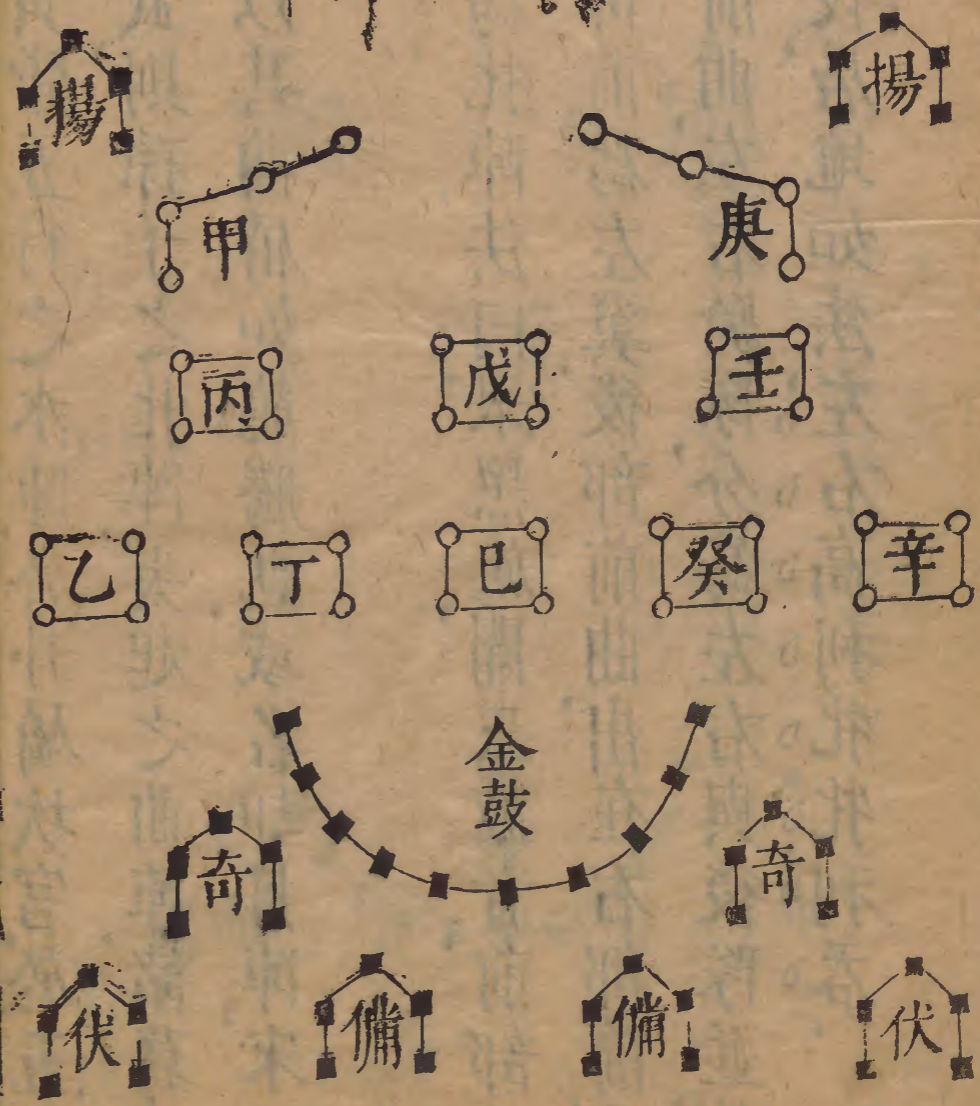 揚 揚
甲 庚
丙 戊 壬
乙 丁 巳 癸 辛
金鼓
奇 奇
伏 備 備 伏